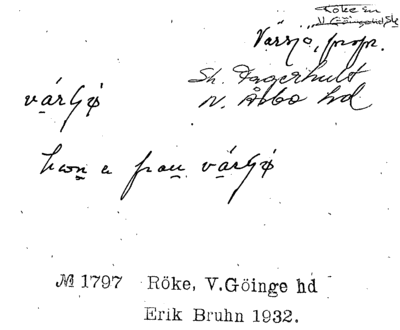 Röke sn
V. Göinge hd Sk
Värsjö, propr.
Sk. Fagerhult
N. Åsbo hd
várʃǿ
han a frau várʃǿ
№ 1797 Röke, V.Göinge hd
Erik Bruhn 1932.